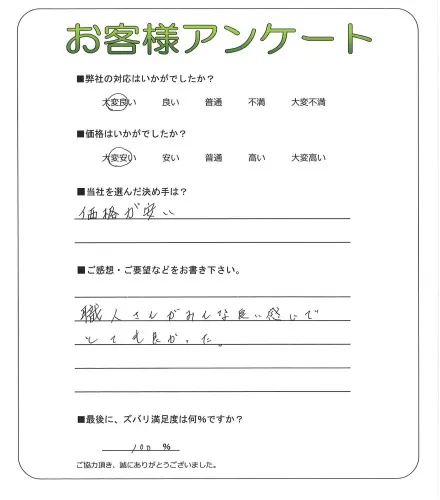 お客様アンケート
■弊社の対応はいかがでしたか？
大変良い 良い 普通 不満 大変不満
■価格はいかがでしたか？
大変安い 安い 普通 高い 大変高い
■当社を選んだ決め手は？
価格が安い
■ご感想・ご要望などをお書き下さい。
職人さんがみんな良い感じで
とても良かった。
■最後に、ズバリ満足度は何%ですか？
100 %
ご協力頂き、誠にありがとうございました。